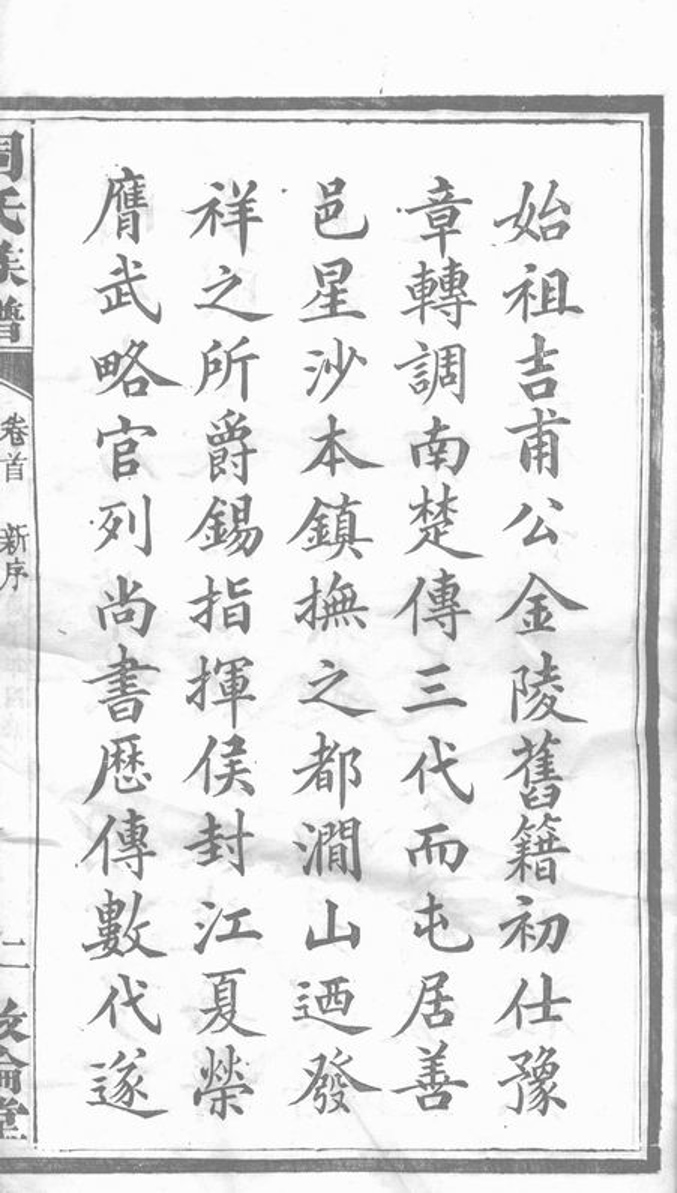 始祖吉甫公金陵舊籍初仕豫
章轉調南楚傳三代而屯居善
邑星沙本鎮撫之都澗山迺發
祥之所爵錫指揮侯封江夏榮
膺武略官列尚書歷傳數代遂
周氏族譜
卷首
新序
二
敦倫堂